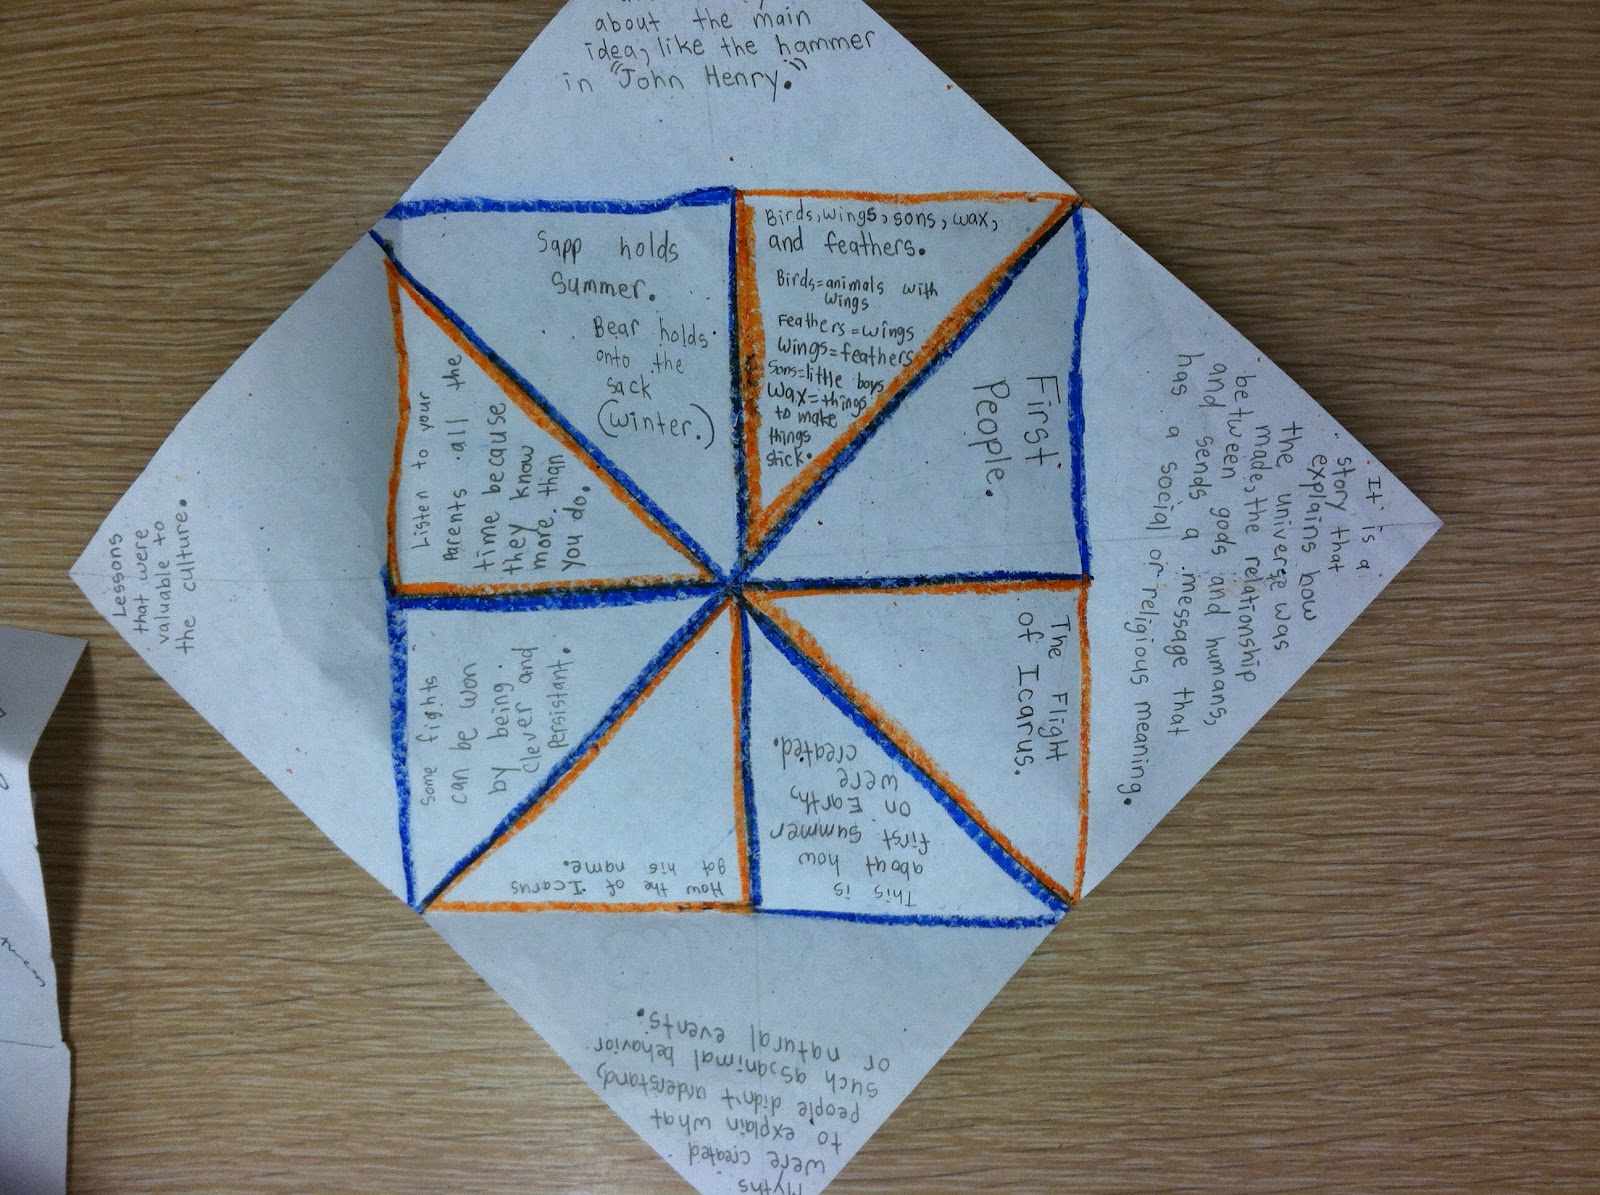 about the main
idea, like the hammer
in "John Henry."
Sapp holds
Summer.
Bear holds
onto the
sack
(winter.)
Birds, wings, sons, wax,
and feathers.
Birds=animals with
wings
Feathers=wings
wings=feathers
Sons=little boys
wax=things
to make
things
stick.
First
People.
The Flight
of Icarus.
It is a
story that
explains how
the universe was
made, the relationship
between gods and humans,
and sends a message that
has a social or religious meaning.
This is
about how
first summer
on Earth,
were
created.
How the of Icarus
got his name.
Myths
were created
to explain what
people didn't understand,
such as, animal behavior
or natural events.
Some fights
can be won
by being
clever and
persistant.
Listen to your
Parents all the
time because
they know
more than
you do.
Lessons
that were
valuable to
the culture.